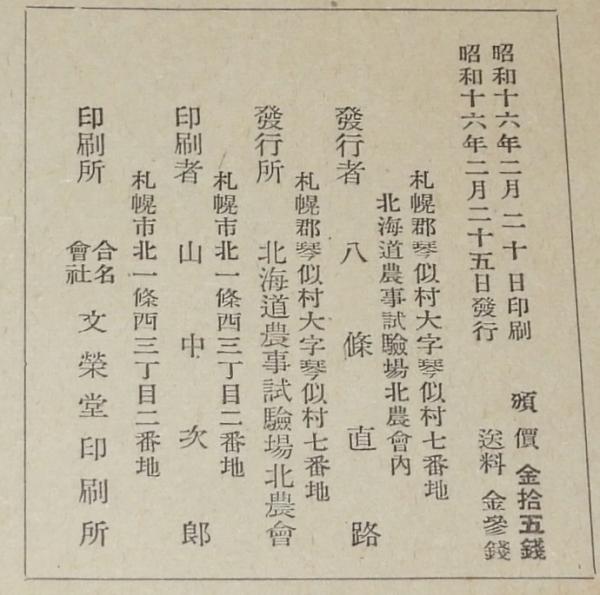 昭和十六年二月二十日印刷
昭和十六年二月二十五日發行
頒價 金拾五錢
送料 金參錢
札幌郡琴似村大字琴似村七番地
北海道農事試驗場北農會內
發行者 八條直路
札幌郡琴似村大字琴似村七番地
發行所 北海道農事試驗場北農會
札幌市北一條西三丁目二番地
印刷者 山中次郎
札幌市北一條西三丁目二番地
印刷所 合名會社 文榮堂印刷所